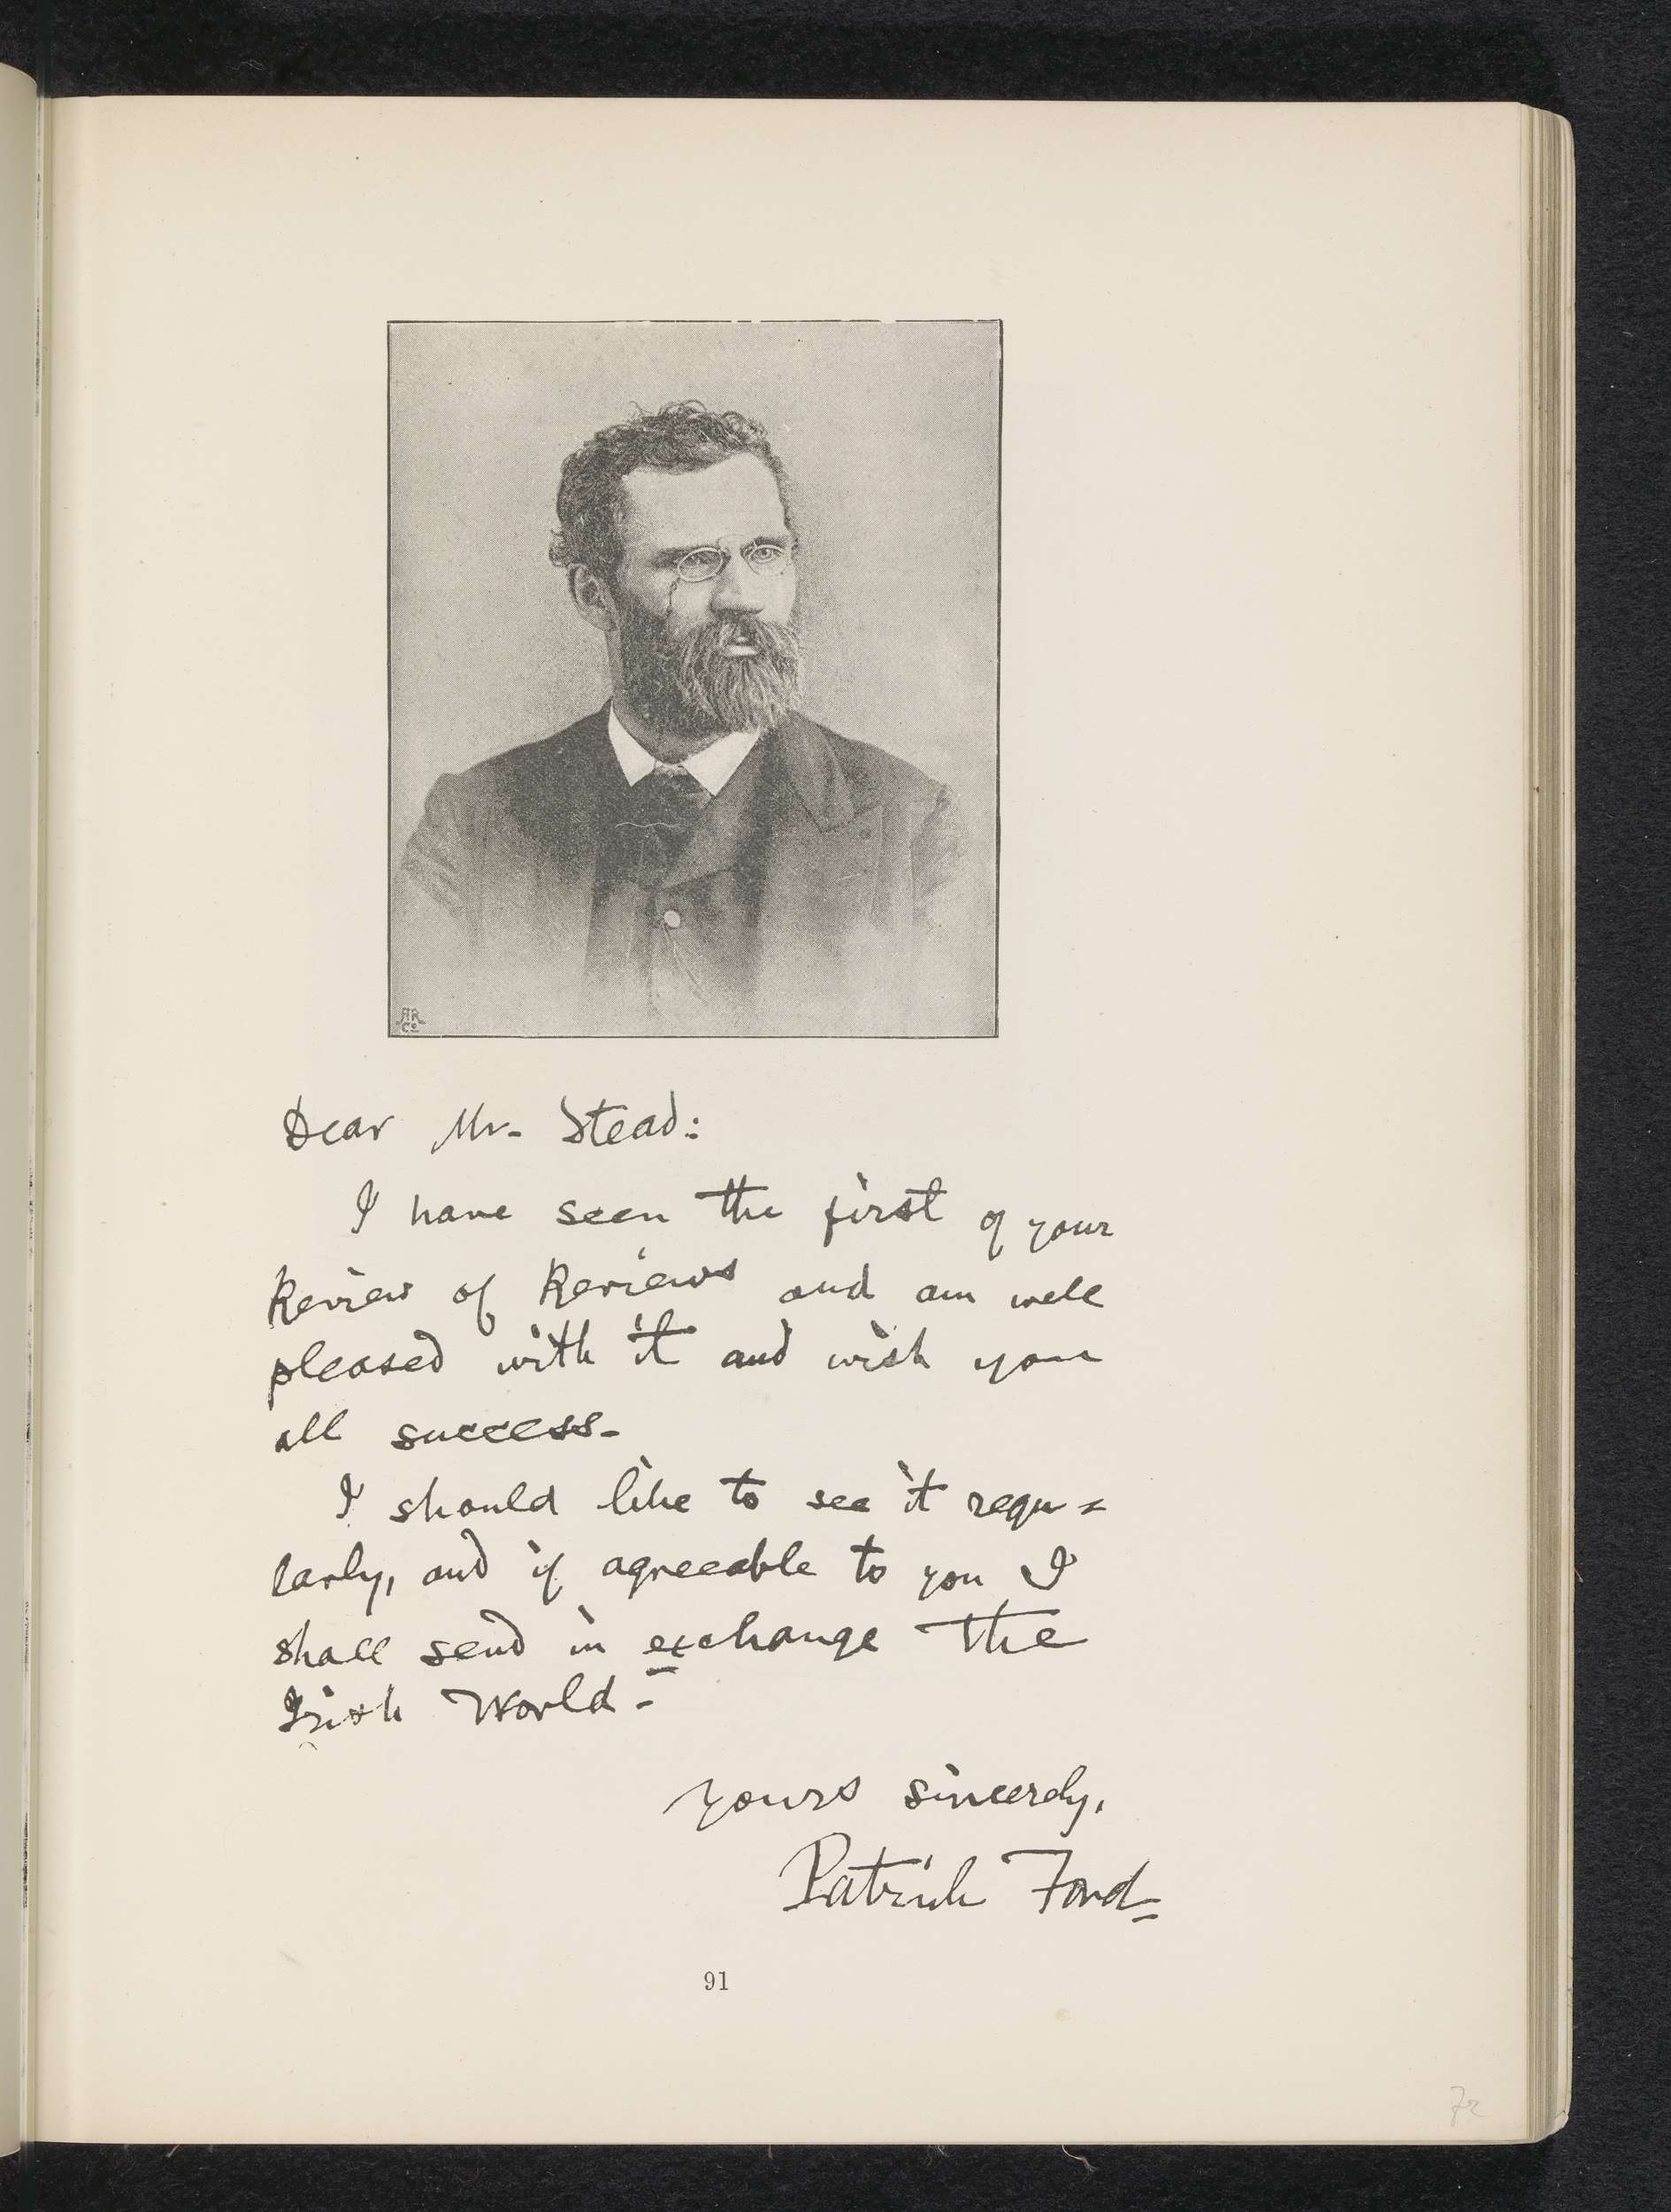 AR
Co
Dear Mr. Stead:
I have seen the first of your
Review of Reviews and am well
pleased with it and wish you
all success-
I should like to see it regu=
larly, and if agreeable to you I
shall send in exchange The
Irish World-
Yours sincerely,
Patrick Ford-
91
72